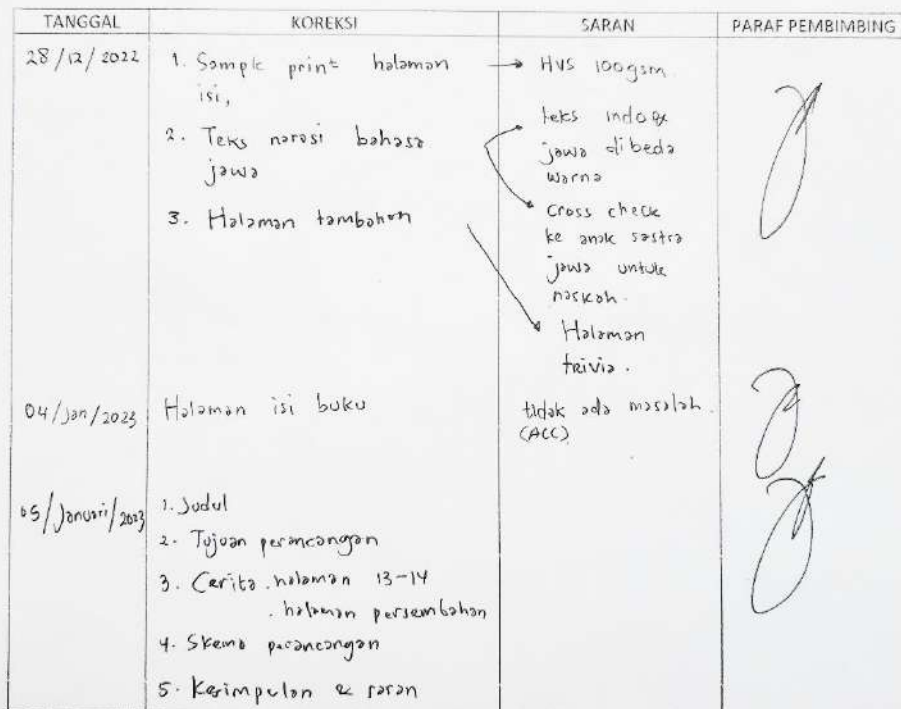 TANGGAL KOREKSI SARAN PARAF PEMBIMBING
28/12/2022
1. Sample print halaman
isi,
2. Teks narasi bahasa
jawa
3. Halaman tambahan
→ HVS 100gsm
teks indo &
jawa dibeda
warna
cross check
ke anak sastra
jawa untuk
naskah.
Halaman
trivia.
04/Jan/2023
Halaman isi buku
tidak ada masalah.
(ACC)
05/Januari/2023
1. Judul
2. Tujuan perancangan
3. Cerita . halaman 13-14
. halaman persembahan
4. Skema perancangan
5. Kesimpulan & saran